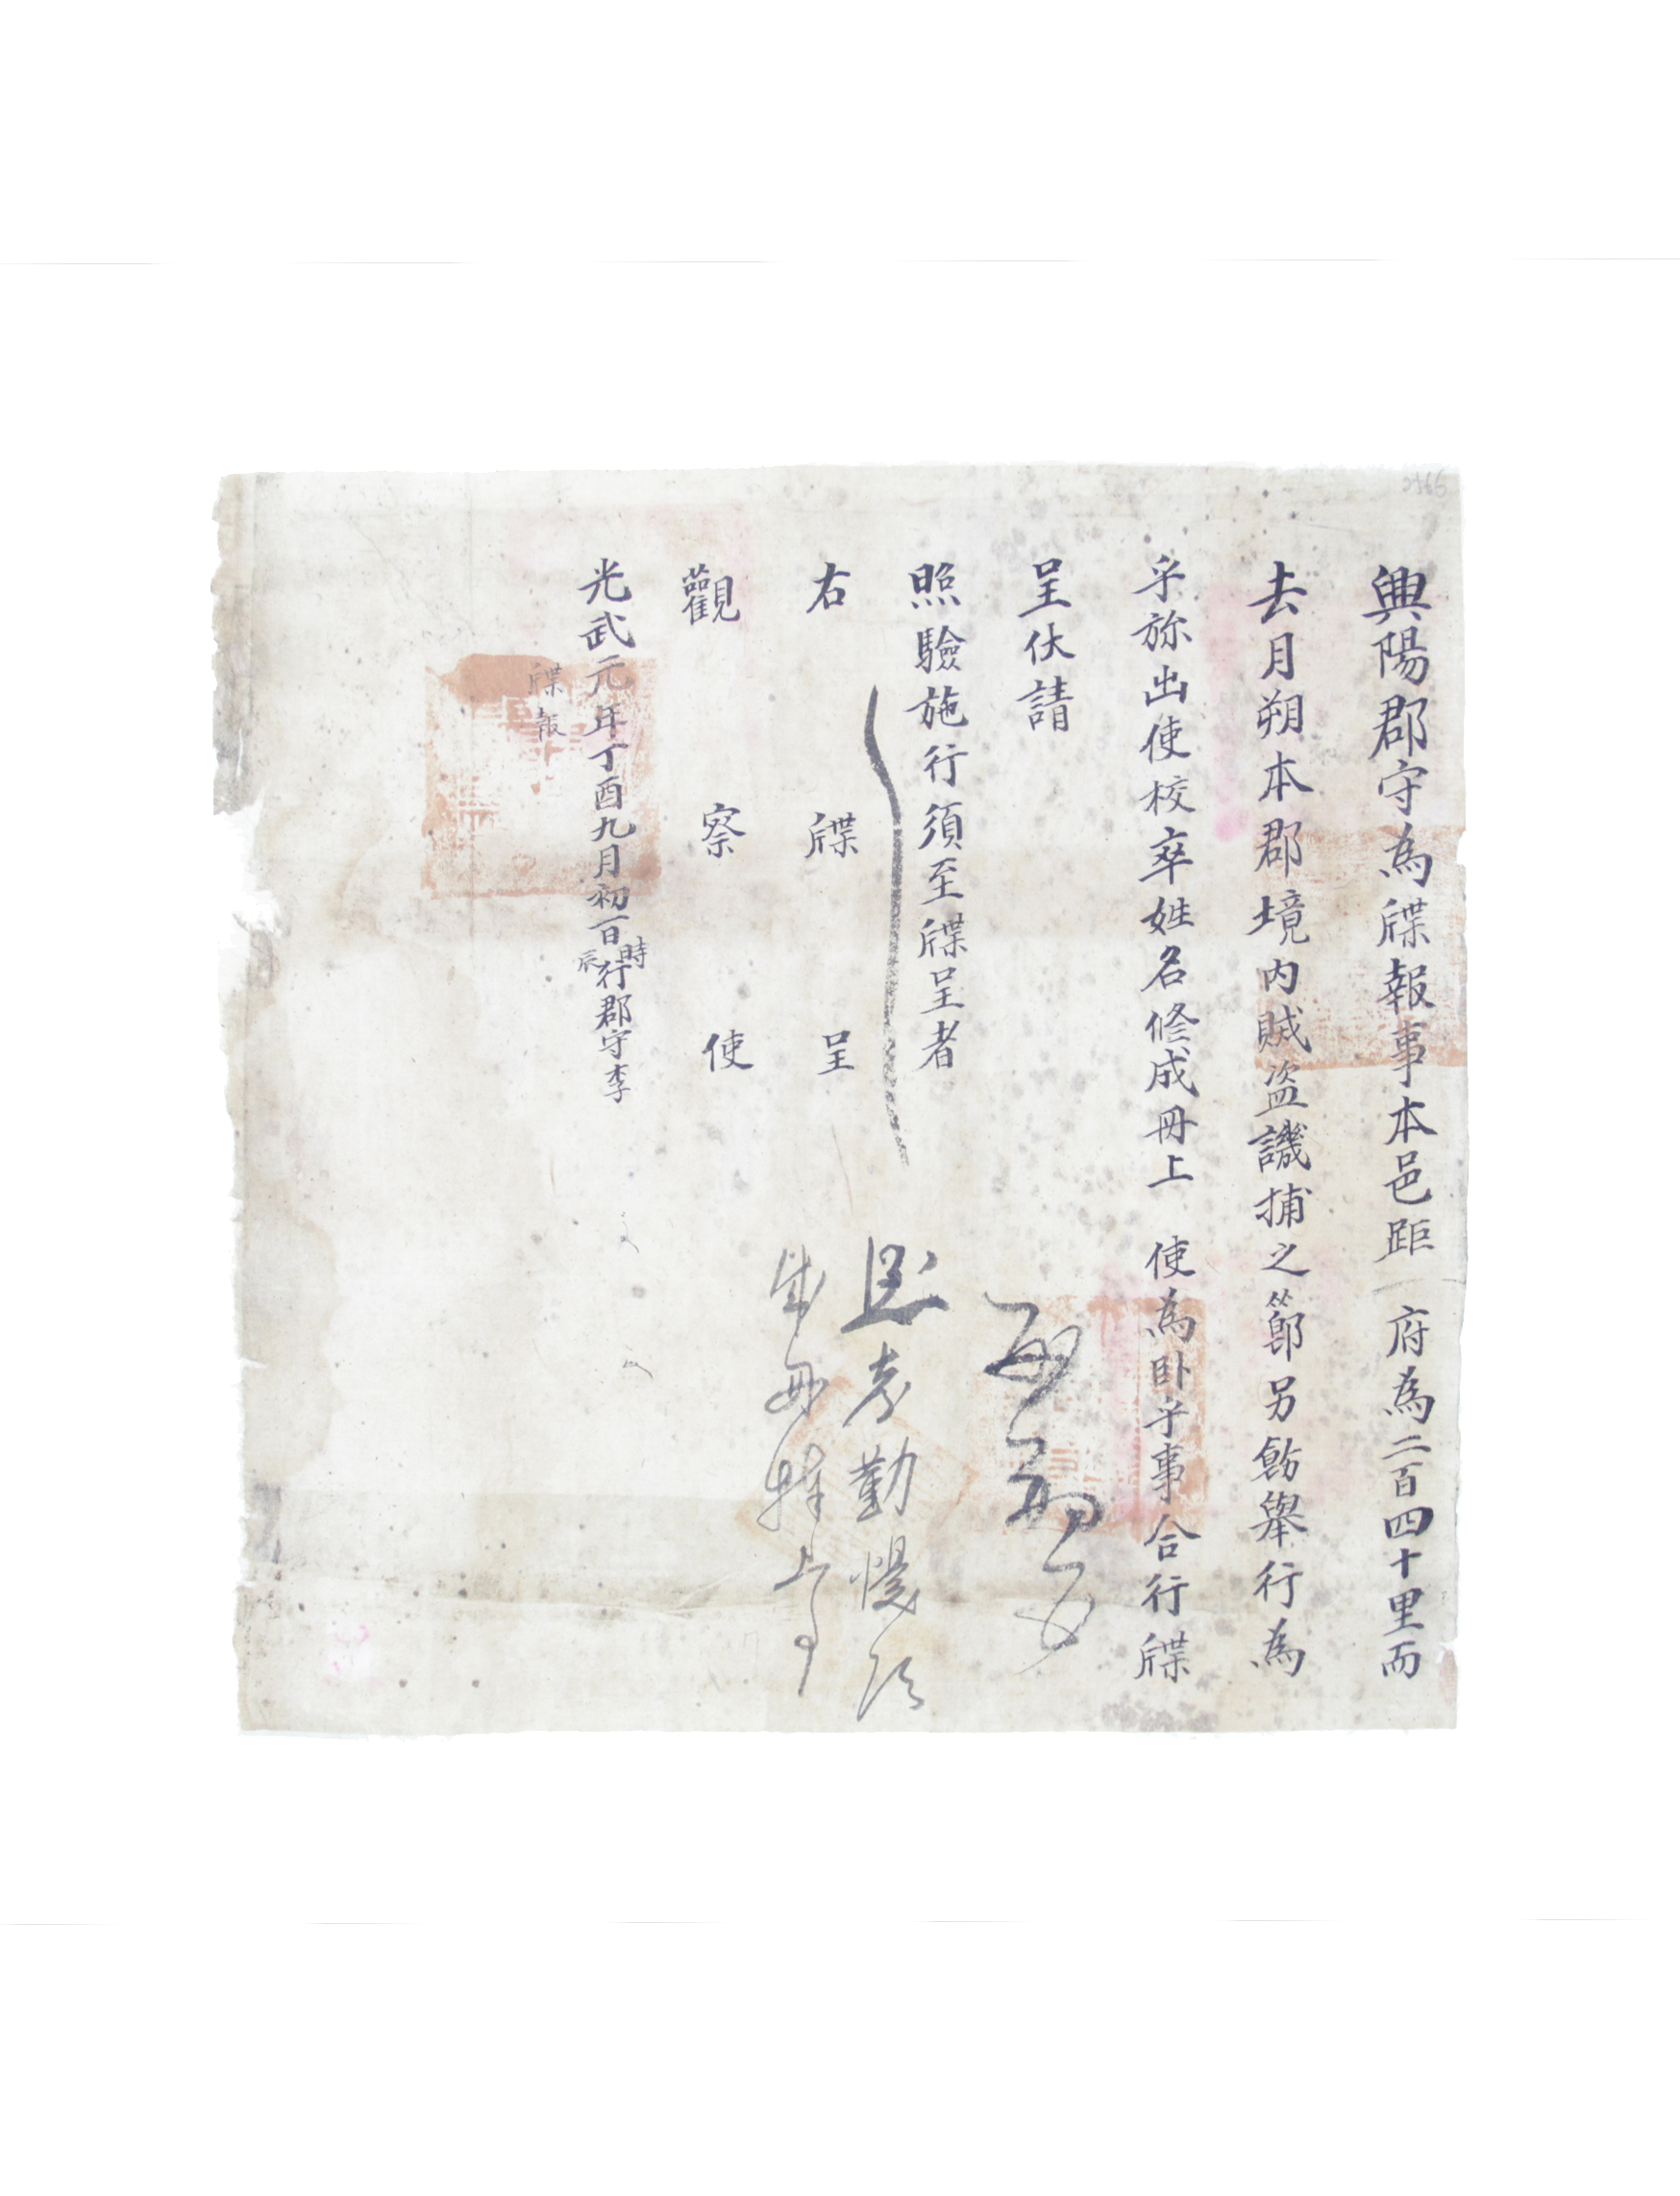 興陽郡守為牒報事本邑距 府為二百四十里而
去月朔本郡境內賊盜譏捕之節另飭舉行為
乎旀出使校卒姓名修成冊上 使為卧乎事合行牒
呈伏請
照驗施行須至牒呈者
右 牒 呈
觀 察 使
光武元年丁酉九月初一日時辰行郡守李
牒報
考勤慢